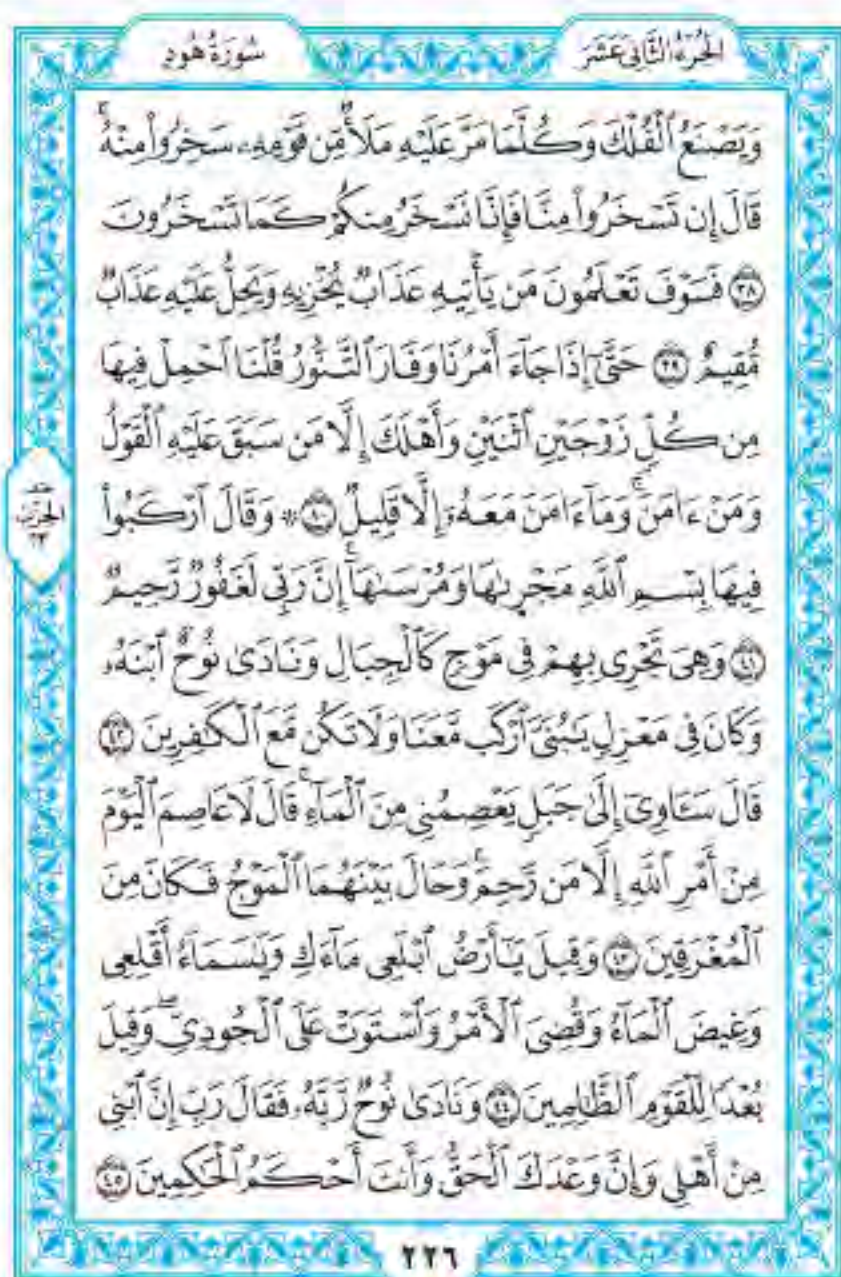 الجُزْءُ الثَّانِي عَشَرَ
سُورَةُ هُودٍ
وَيَصْنَعُ ٱلْفُلْكَ وَكُلَّمَا مَرَّ عَلَيْهِ مَلَأٌ مِّن قَوْمِهِۦ سَخِرُوا۟ مِنْهُ ۚ
قَالَ إِن تَسْخَرُوا۟ مِنَّا فَإِنَّا نَسْخَرُ مِنكُمْ كَمَا تَسْخَرُونَ
٣٨ فَسَوْفَ تَعْلَمُونَ مَن يَأْتِيهِ عَذَابٌ يُخْزِيهِ وَيَحِلُّ عَلَيْهِ عَذَابٌ
مُّقِيمٌ ٣٩ حَتَّىٰٓ إِذَا جَآءَ أَمْرُنَا وَفَارَ ٱلتَّنُّورُ قُلْنَا ٱحْمِلْ فِيهَا
مِن كُلٍّ زَوْجَيْنِ ٱثْنَيْنِ وَأَهْلَكَ إِلَّا مَن سَبَقَ عَلَيْهِ ٱلْقَوْلُ
وَمَنْ ءَامَنَ ۚ وَمَآ ءَامَنَ مَعَهُۥٓ إِلَّا قَلِيلٌ ٤٠ ۞ وَقَالَ ٱرْكَبُوا۟
فِيهَا بِسْمِ ٱللَّهِ مَجْر۪ىٰهَا وَمُرْسَىٰهَآ ۚ إِنَّ رَبِّى لَغَفُورٌ رَّحِيمٌ
٤١ وَهِىَ تَجْرِى بِهِمْ فِى مَوْجٍ كَٱلْجِبَالِ وَنَادَىٰ نُوحٌ ٱبْنَهُۥ
وَكَانَ فِى مَعْزِلٍ يَٰبُنَىَّ ٱرْكَب مَّعَنَا وَلَا تَكُن مَّعَ ٱلْكَٰفِرِينَ ٤٢
قَالَ سَـَٔاوِىٓ إِلَىٰ جَبَلٍ يَعْصِمُنِى مِنَ ٱلْمَآءِ ۚ قَالَ لَا عَاصِمَ ٱلْيَوْمَ
مِنْ أَمْرِ ٱللَّهِ إِلَّا مَن رَّحِمَ ۚ وَحَالَ بَيْنَهُمَا ٱلْمَوْجُ فَكَانَ مِنَ
ٱلْمُغْرَقِينَ ٤٣ وَقِيلَ يَٰٓأَرْضُ ٱبْلَعِى مَآءَكِ وَيَٰسَمَآءُ أَقْلِعِى
وَغِيضَ ٱلْمَآءُ وَقُضِىَ ٱلْأَمْرُ وَٱسْتَوَتْ عَلَى ٱلْجُودِىِّ ۖ وَقِيلَ
بُعْدًا لِّلْقَوْمِ ٱلظَّٰلِمِينَ ٤٤ وَنَادَىٰ نُوحٌ رَّبَّهُۥ فَقَالَ رَبِّ إِنَّ ٱبْنِى
مِنْ أَهْلِى وَإِنَّ وَعْدَكَ ٱلْحَقُّ وَأَنتَ أَحْكَمُ ٱلْحَٰكِمِينَ ٤٥
الحزب
٢٣
٢٢٦